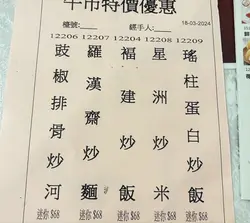 午市特價優惠
檯號:____ 經手人:____ 18-03-2024
12206 12207 12204 12208 12209
豉椒排骨炒河
羅漢齋炒麵
福建炒飯
星洲炒米
瑤柱蛋白炒飯
迷你 $68 迷你 $68 迷你 $68 迷你 $68 迷你 $68